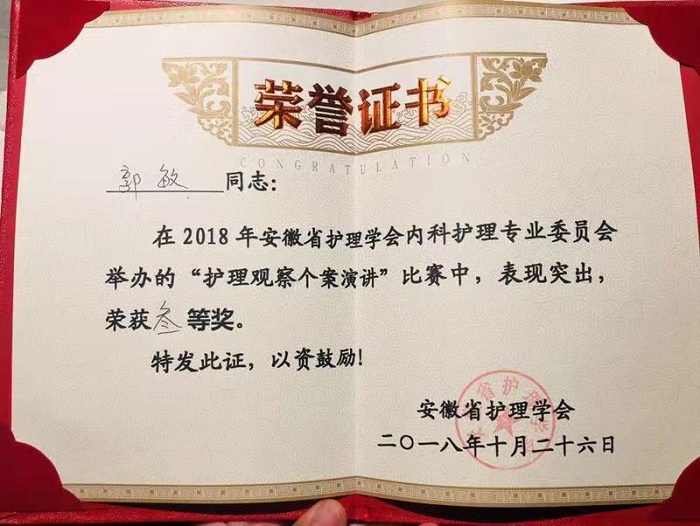 荣誉证书
CONGRATULATION
郭敏同志：
在2018年安徽省护理学会内科护理专业委员会
举办的“护理观察个案演讲”比赛中，表现突出，
荣获叁等奖。
特发此证，以资鼓励！
安徽省护理学会
二〇一八年十月二十六日